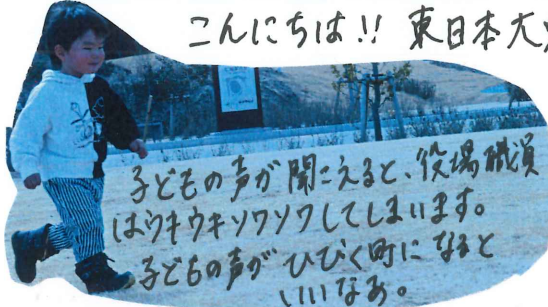 こんにちは!! 東日本大
子どもの声が聞こえると、役場職員
はウキウキソワソワしてしまいます。
子どもの声がひびく町になると
いいなあ。